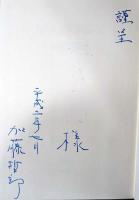 謹呈
様
平成二年七月
加藤哲郎